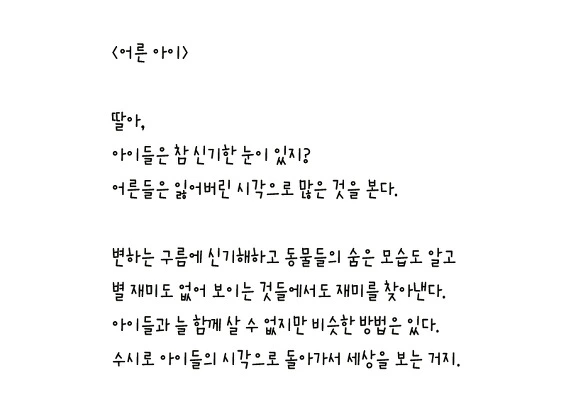 <어른 아이>
딸아,
아이들은 참 신기한 눈이 있지?
어른들은 잃어버린 시각으로 많은 것을 본다.
변하는 구름에 신기해하고 동물들의 숨은 모습도 알고
별 재미도 없어 보이는 것들에서도 재미를 찾아낸다.
아이들과 늘 함께 살 수 없지만 비슷한 방법은 있다.
수시로 아이들의 시각으로 돌아가서 세상을 보는 거지.